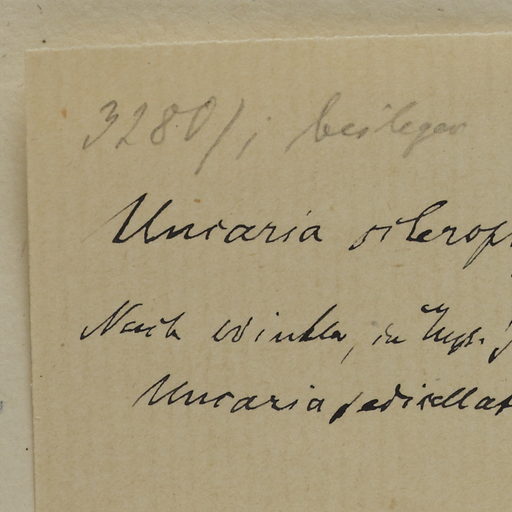 3280/; beilegen
Uncaria sclerop
Nach Winkler, in
Uncaria pedicellat